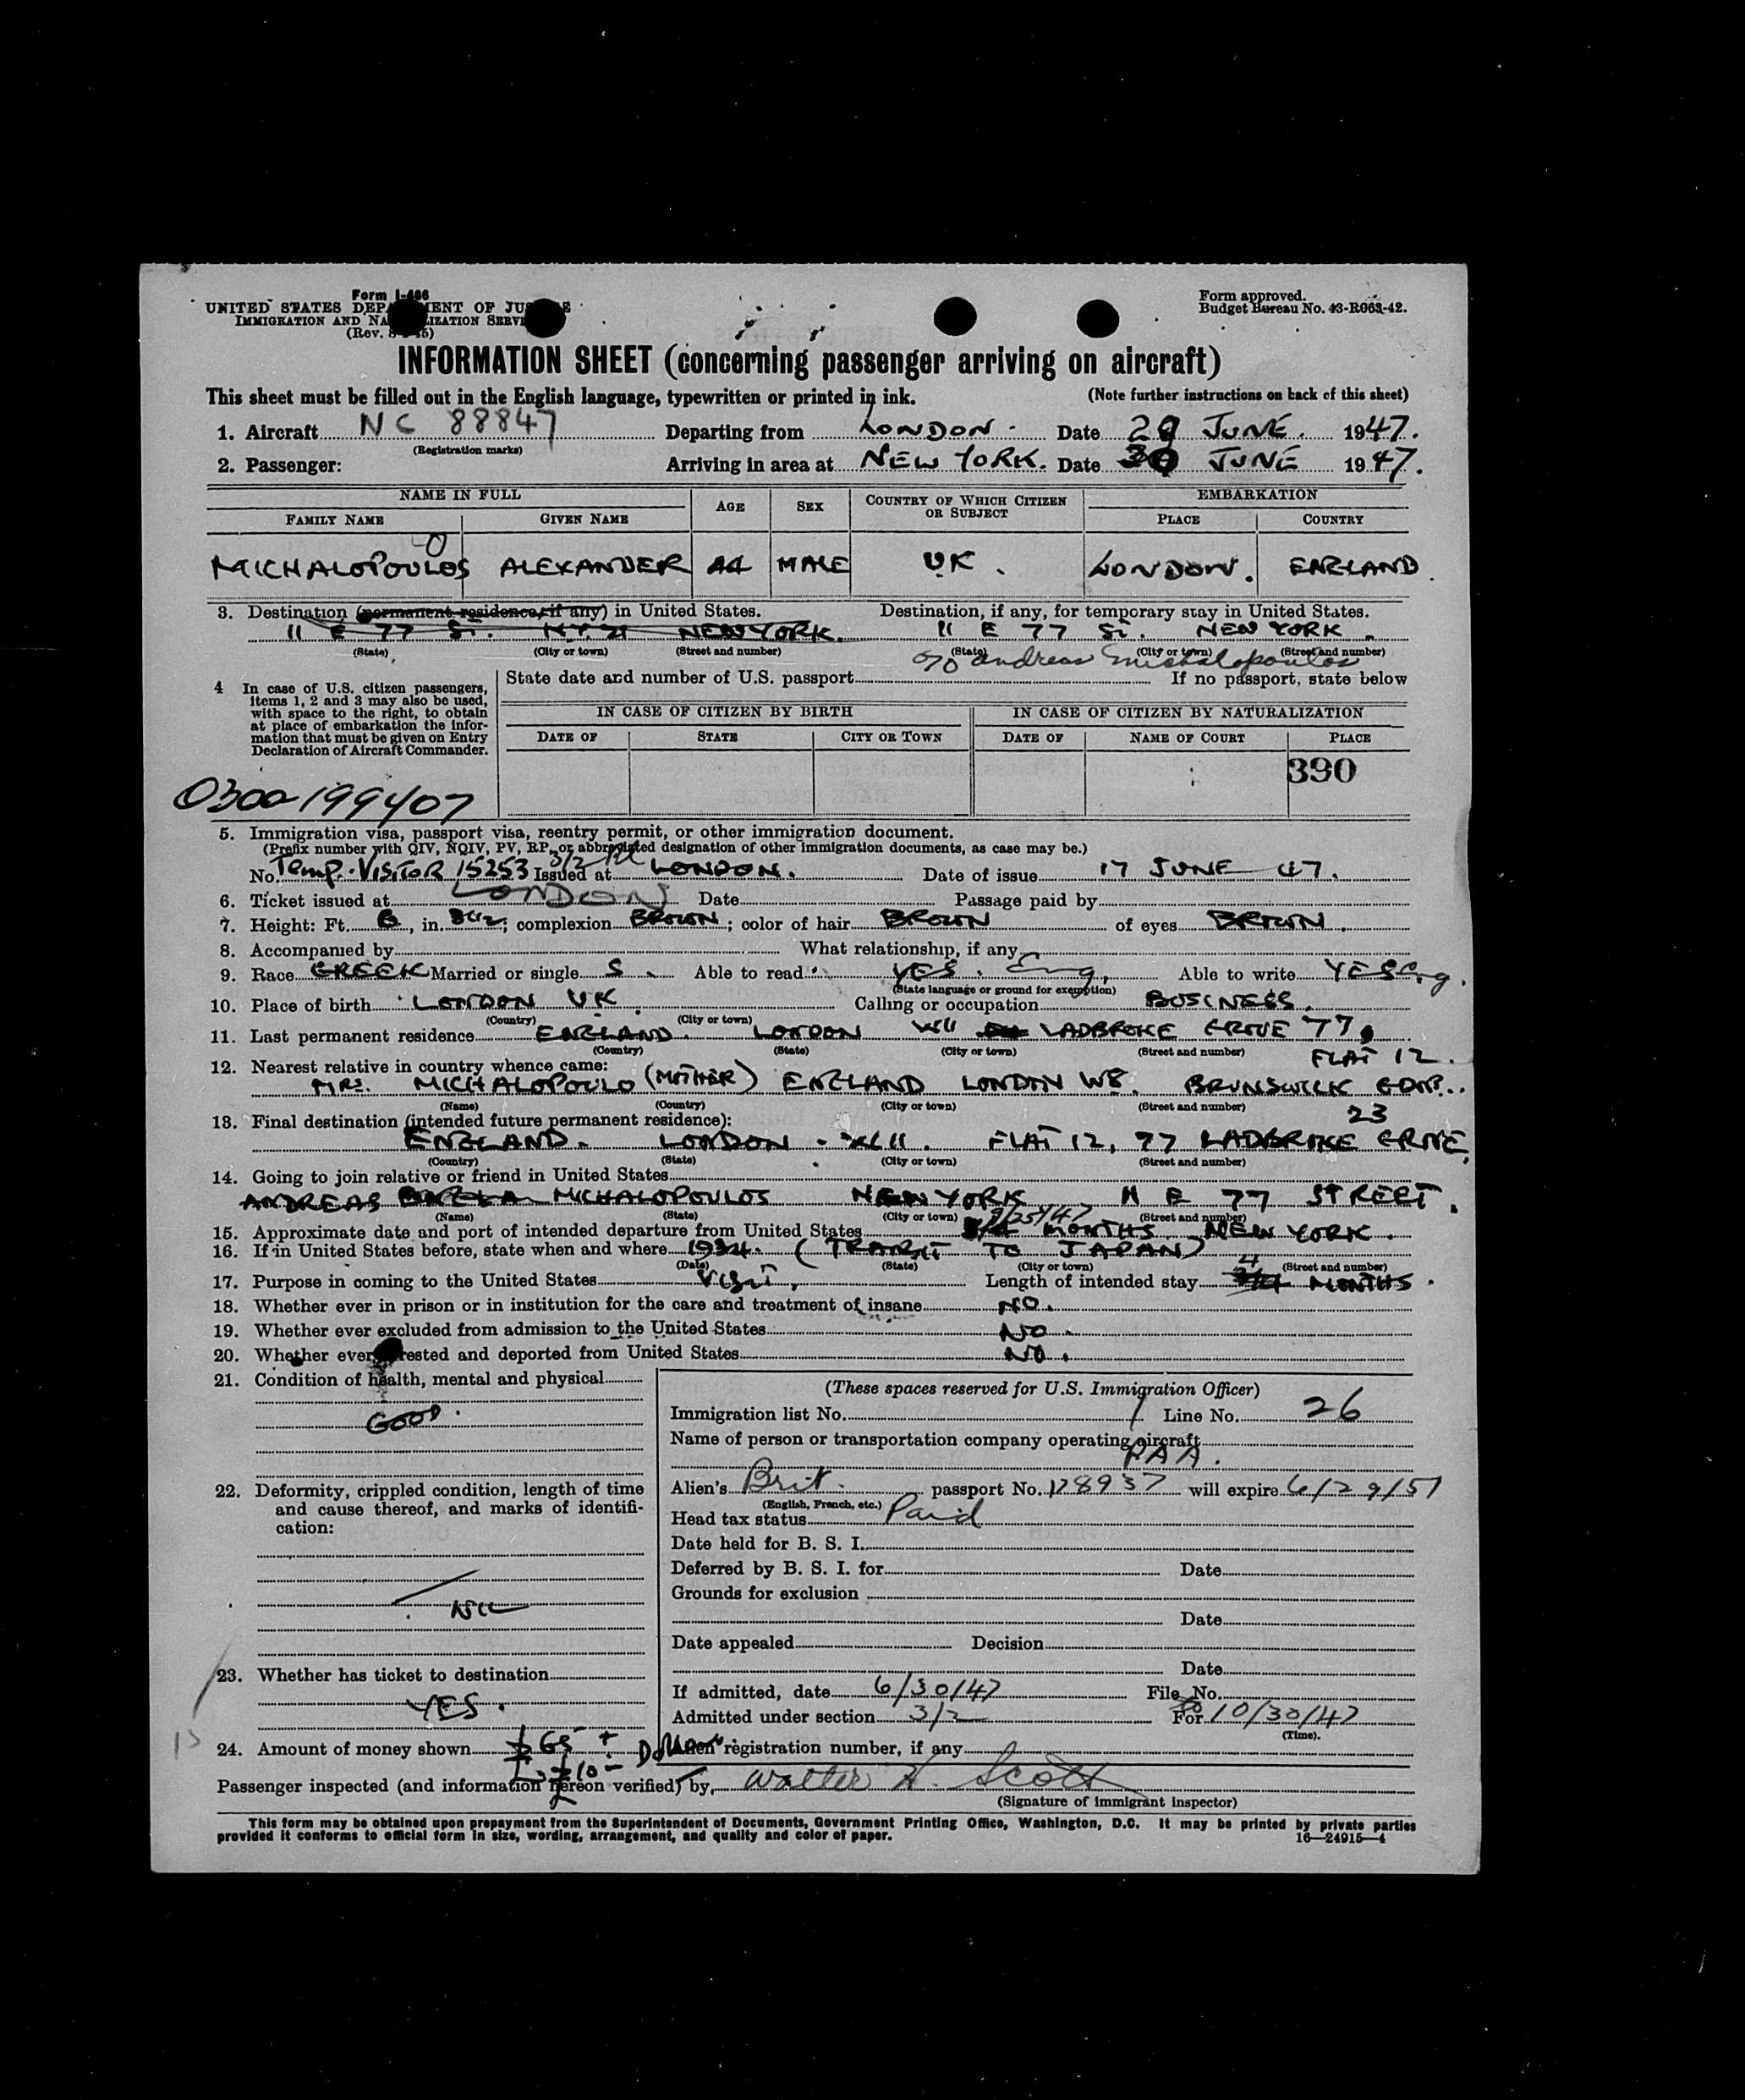 Form I-466
UNITED STATES DEPARTMENT OF JUSTICE
IMMIGRATION AND NATURALIZATION SERVICE
(Rev. 5)
Form approved.
Budget Bureau No. 43-R063-42.
INFORMATION SHEET (concerning passenger arriving on aircraft)
This sheet must be filled out in the English language, typewritten or printed in ink. (Note further instructions on back of this sheet)
1. Aircraft NC 88847 Departing from LONDON. Date 29 JUNE. 1947.
(Registration marks)
2. Passenger: Arriving in area at NEW YORK. Date 30 JUNE 1947.
NAME IN FULL AGE SEX COUNTRY OF WHICH CITIZEN OR SUBJECT EMBARKATION
FAMILY NAME GIVEN NAME PLACE COUNTRY
MICHALOPOULOS ALEXANDER 44 MALE UK. LONDON. ENGLAND.
3. Destination (permanent residence, if any) in United States. Destination, if any, for temporary stay in United States.
11 E 77 ST. N.Y. 21 NEW YORK. 11 E 77 ST. NEW YORK.
(State) (City or town) (Street and number) (State) (City or town) (Street and number)
c/o Andreas Michalopoulos
4 In case of U.S. citizen passengers, items 1, 2 and 3 may also be used, with space to the right, to obtain at place of embarkation the information that must be given on Entry Declaration of Aircraft Commander.
State date and number of U.S. passport If no passport, state below
IN CASE OF CITIZEN BY BIRTH IN CASE OF CITIZEN BY NATURALIZATION
DATE OF STATE CITY OR TOWN DATE OF NAME OF COURT PLACE
390
0300-199407
5. Immigration visa, passport visa, reentry permit, or other immigration document.
(Prefix number with QIV, NQIV, PV, RP, or abbreviated designation of other immigration documents, as case may be.)
No. Temp. VISITOR 15253 3/2 Issued at LONDON. Date of issue 17 JUNE 47.
6. Ticket issued at LONDON Date Passage paid by
7. Height: Ft. , in. ; complexion BROWN; color of hair BROWN of eyes BROWN.
8. Accompanied by What relationship, if any
9. Race GREEK Married or single S. Able to read YES. Eng. Able to write YES Eng.
(State language or ground for exemption)
10. Place of birth LONDON UK. Calling or occupation BUSINESS.
(Country) (City or town)
11. Last permanent residence ENGLAND. LONDON W11 LADBROKE GROVE 77,
(Country) (State) (City or town) (Street and number)
FLAT 12.
12. Nearest relative in country whence came:
MRS. MICHALOPOULO (MOTHER) ENGLAND LONDON W8. BRUNSWICK GDNS..
(Name) (Country) (City or town) (Street and number)
23
13. Final destination (intended future permanent residence):
ENGLAND. LONDON. W11. FLAT 12, 77 LADBROKE GROVE,
(Country) (State) (City or town) (Street and number)
14. Going to join relative or friend in United States
ANDREAS MICHALOPOULOS NEW YORK 11 E 77 STREET.
(Name) (State) (City or town) (Street and number)
15. Approximate date and port of intended departure from United States 9/25/47 MONTHS NEW YORK.
16. If in United States before, state when and where 1934. (TRANSIT TO JAPAN)
(Date) (State) (City or town) (Street and number)
17. Purpose in coming to the United States VISIT. Length of intended stay 4 MONTHS.
18. Whether ever in prison or in institution for the care and treatment of insane NO.
19. Whether ever excluded from admission to the United States NO.
20. Whether ever arrested and deported from United States NO.
21. Condition of health, mental and physical
GOOD.
22. Deformity, crippled condition, length of time and cause thereof, and marks of identification:
NIL
23. Whether has ticket to destination
YES.
24. Amount of money shown
(These spaces reserved for U.S. Immigration Officer)
Immigration list No. 1 Line No. 26
Name of person or transportation company operating aircraft
PAA.
Alien's Brit. passport No. 128937 will expire 6/29/51
(English, French, etc.)
Head tax status Paid
Date held for B. S. I.
Deferred by B. S. I. for Date
Grounds for exclusion
Date
Date appealed Decision
Date
If admitted, date 6/30/47 File No.
Admitted under section 3/2 For to 10/30/47
(Time).
Alien registration number, if any
Passenger inspected (and information hereon verified) by, Walter H. Scott
(Signature of immigrant inspector)
This form may be obtained upon prepayment from the Superintendent of Documents, Government Printing Office, Washington, D.C. It may be printed by private parties
provided it conforms to official form in size, wording, arrangement, and quality and color of paper. 16—24915-4